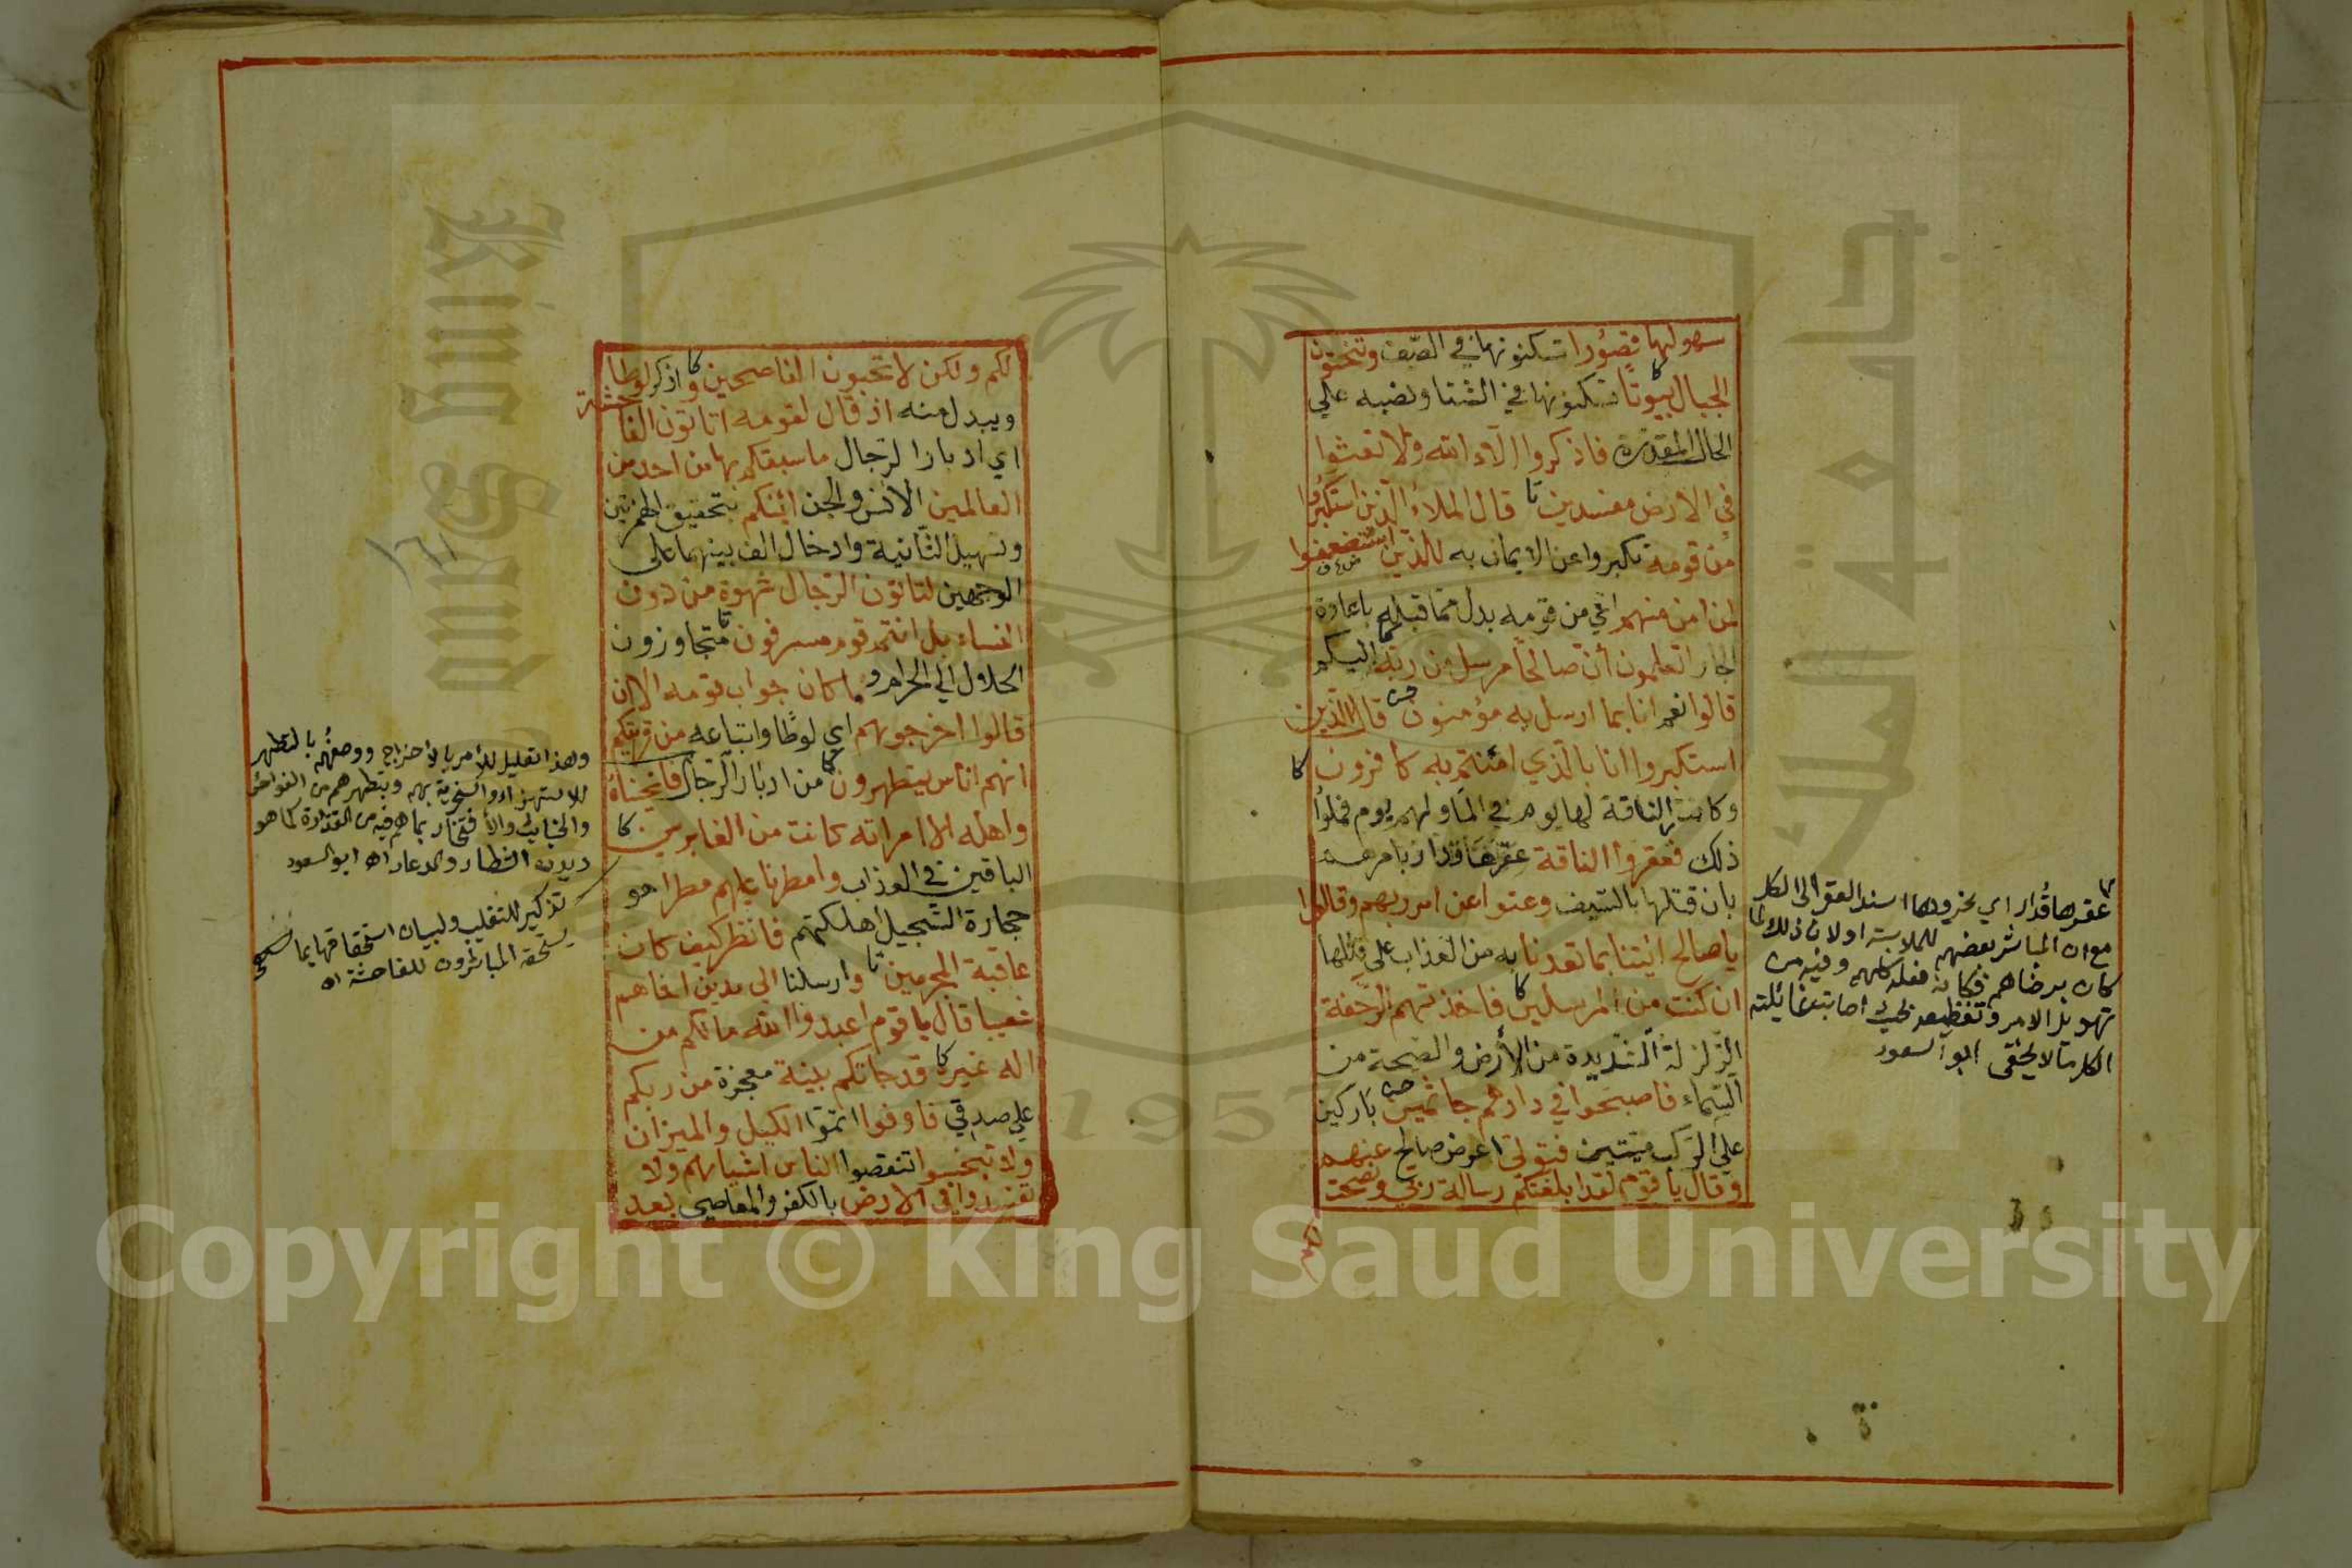 سهولها قصورا تسكنونها في الصيف وتنحتون
الجبال بيوتا تسكنونها في الشتا ونصبه علي
الحال المقدرة فاذكروا الآء الله ولا تعثوا
في الارض مفسدين قال الملاء الذين استكبروا
من قومه تكبروا عن الايمان به للذين استضعفوا
لمن امن منهم اي من قومه بدل مما قبله باعادة
الجار اتعلمون ان صالحا مرسل من ربه اليكم
قالوا نعم انا بما ارسل به مؤمنون قال الذين
استكبروا انا بالذي امنتم به كافرون
وكانت الناقة لها يوم في الما ولهم يوم فملوا
ذلك فعقروا الناقة عقرها قدار بامرهم
بان قتلها بالسيف وعتوا عن امر ربهم وقالوا
يا صالح ائيتنا بما تعدنا به من العذاب علي قتلها
ان كنت من المرسلين فاخذتهم الرجفة
الزلزلة الشديدة من الأرض والصيحة من
السماء فاصبحوا في دارهم جاثمين باركين
علي الركب ميتين فتولي اعرض صالح عنهم
وقال يا قوم لقد ابلغتكم رسالة ربي ونصحت
لكم
عقرها قدار اي نحروها اسند العقر الى الكل
مع ان المباشر بعضهم للملابسة او لان ذلك لما
كان برضاهم فكانه فعله كلهم وفيه من
تهويل الامر وتفظيعه بحيث اصابت غائلته
الكل ما لا يخفى ابو السعود
لكم ولكن لا تحبون الناصحين واذكر لوطا
ويبدل منه اذ قال لقومه اتاتون الفاحشة
اي ادبار الرجال ما سبقكم بها من احد من
العالمين الانس والجن ائنكم بتحقيق الهمزتين
وتسهيل الثانية وادخال الف بينهما على
الوجهين لتاتون الرجال شهوة من دون
النساء بل انتم قوم مسرفون متجاوزون
الحلال الي الحرام وما كان جواب قومه الا ان
قالوا اخرجوهم اي لوطا واتباعه من قريتكم
انهم اناس يتطهرون من ادبار الرجال فانجيناه
واهله الا امراته كانت من الغابرين
الباقين في العذاب وامطرنا عليهم مطرا هو
حجارة السجيل اهلكتهم فانظر كيف كان
عاقبة المجرمين وارسلنا الى مدين اخاهم
شعيبا قال يا قوم اعبدوا الله ما لكم من
اله غيره قد جاتكم بينة معجزة من ربكم
علي صدقي فاوفوا اتموا الكيل والميزان
ولا تبخسوا تنقصوا الناس اشياءهم ولا
تفسدوا في الارض بالكفر والمعاصي بعد
وهذا تعليل للأمر بالاخراج ووصفهم بالتطهر
للاستهزاء والسخرية بهم وبتطهرهم من الفواحش
والخبائث والافتخار بما هم فيه من القذارة كما هو
ديدن الشطار والدعار اه ابو السعود
تذكير للتغليب ولبيان استحقاقها بما
يستحقه المباشرون للفاحشة اه
King Saud University
جامعة الملك سعود
1957
Copyright © King Saud University